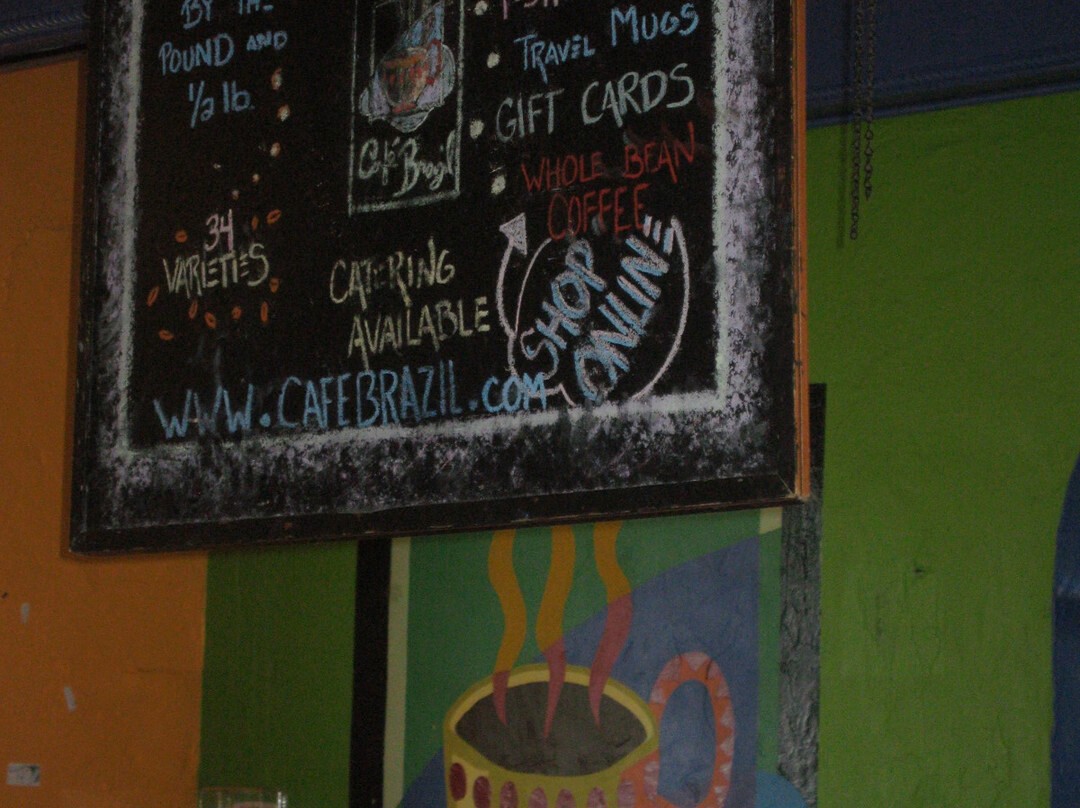 BY THE
POUND AND
1/2 lb.
34
VARIETIES
Café Brazil
CATERING
AVAILABLE
TRAVEL MUGS
GIFT CARDS
WHOLE BEAN
COFFEE
SHOP
ONLINE
WWW.CAFEBRAZIL.COM